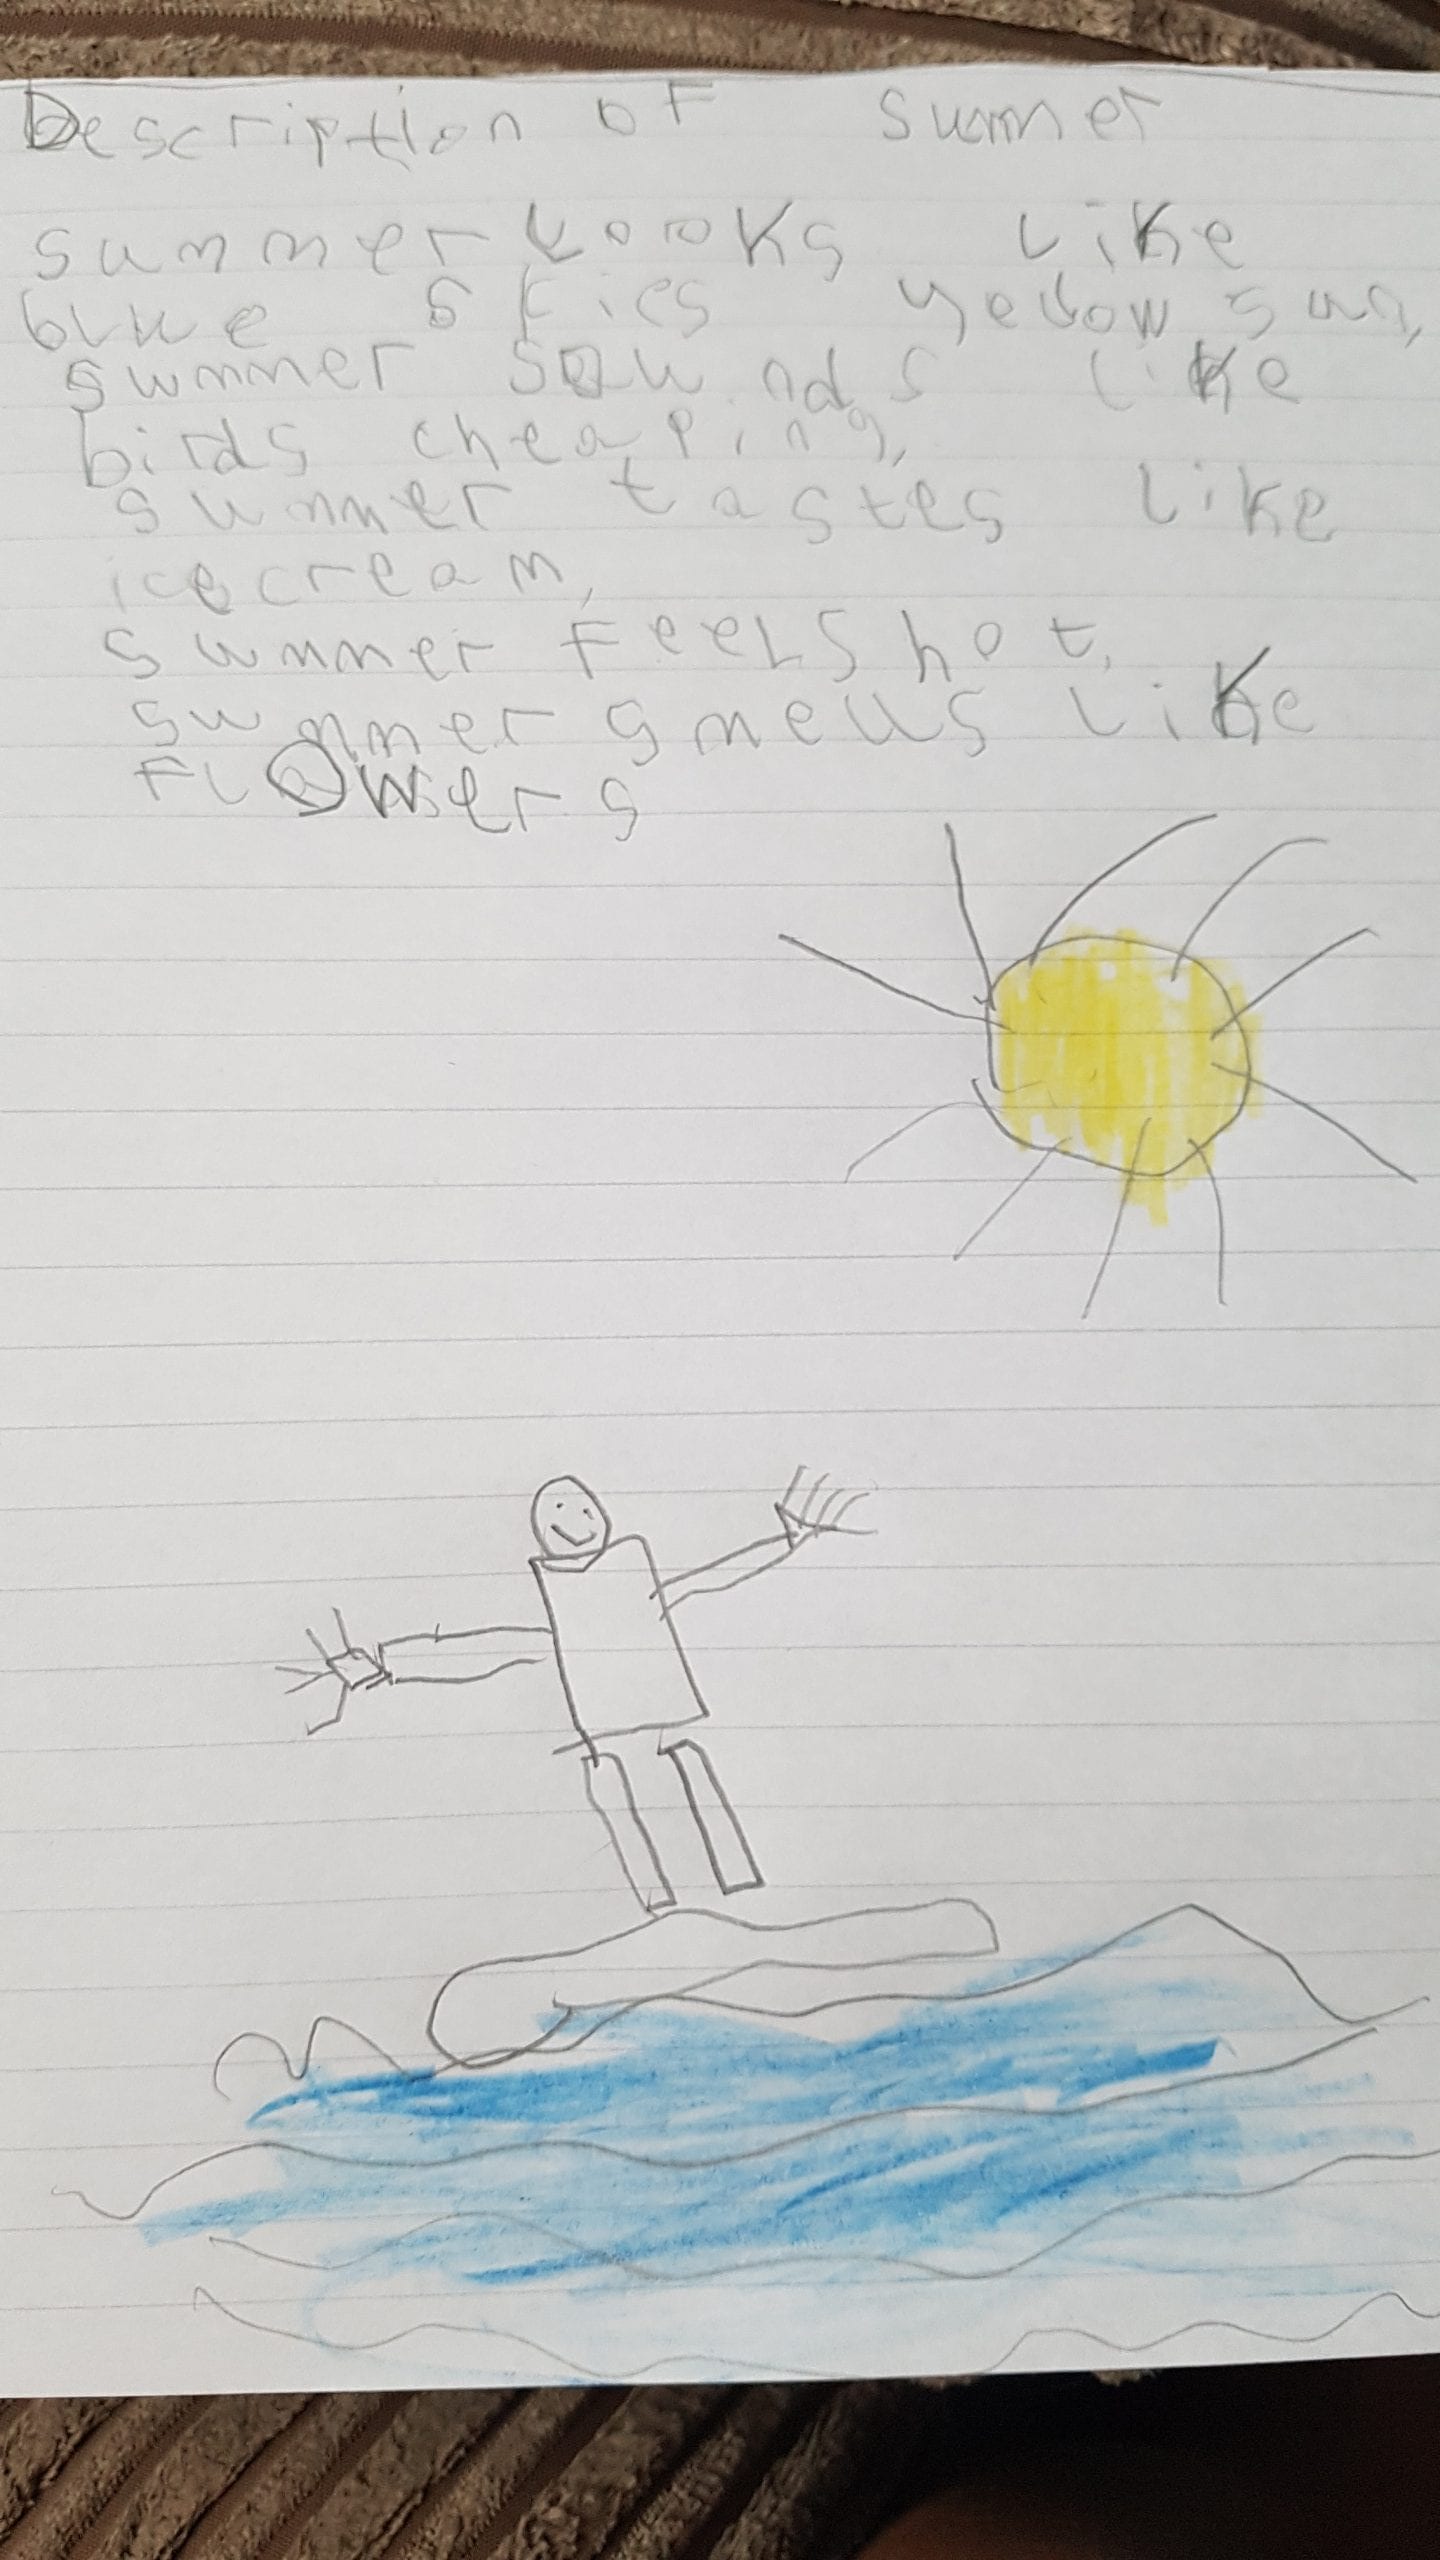 Description of summer
summer looks like
blue skies yellow sun,
summer sounds like
birds cheaping,
summer tastes like
icecream,
summer feels hot,
summer smells like
flowers